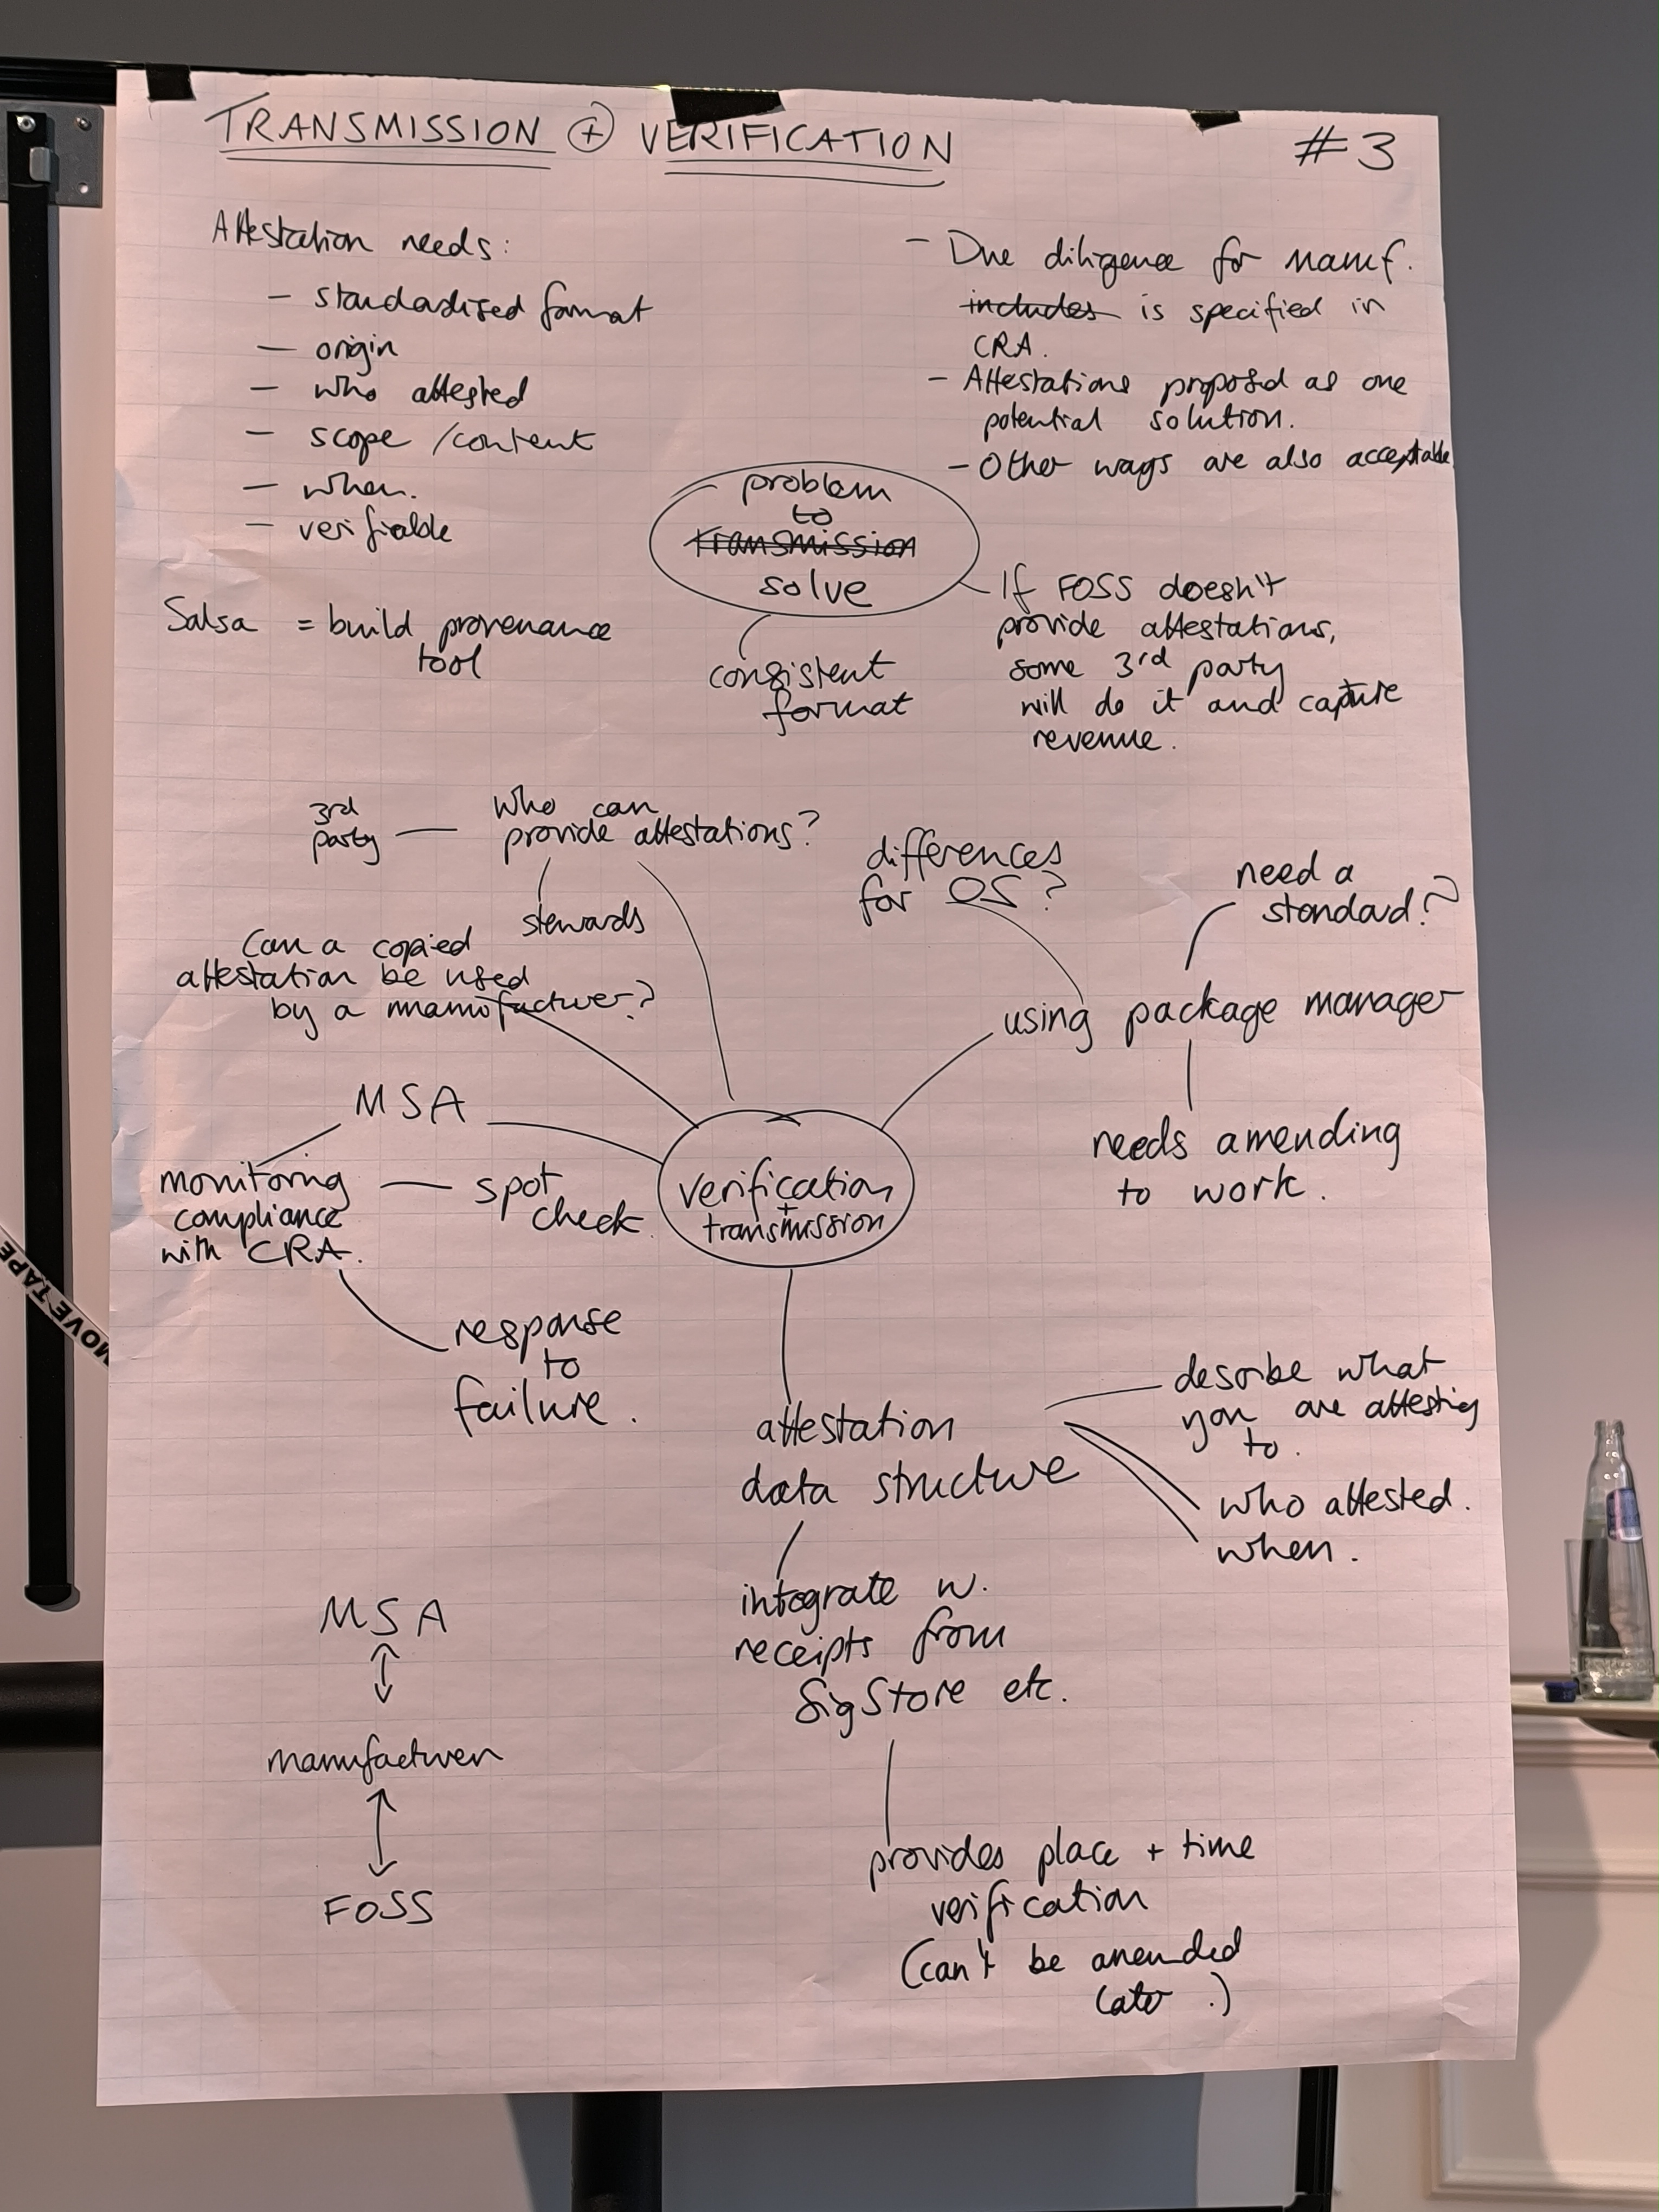 TRANSMISSION + VERIFICATION
#3
Attestation needs:
- standardised format
- origin
- who attested
- scope / content
- when.
- verifiable
Salsa = build provenance
tool
- Due diligence for manuf.
includes is specified in
CRA.
- Attestations proposed as one
potential solution.
- Other ways are also acceptable
problem
to
transmission
solve
consistent
format
If FOSS doesn't
provide attestations,
some 3rd party
will do it and capture
revenue.
3rd
party
Who can
provide attestations?
stewards
differences
for OS?
need a
standard?
Can a copied
attestation be used
by a manufacturer?
using package manager
needs amending
to work.
MSA
monitoring
compliance
with CRA.
spot
check.
response
to
failure.
verification
+
transmission
attestation
data structure
describe what
you are attesting
to.
who attested.
when.
integrate w.
receipts from
SigStore etc.
provides place + time
verification
(can't be amended
later.)
MSA
manufacturer
FOSS
MOVE TAPE